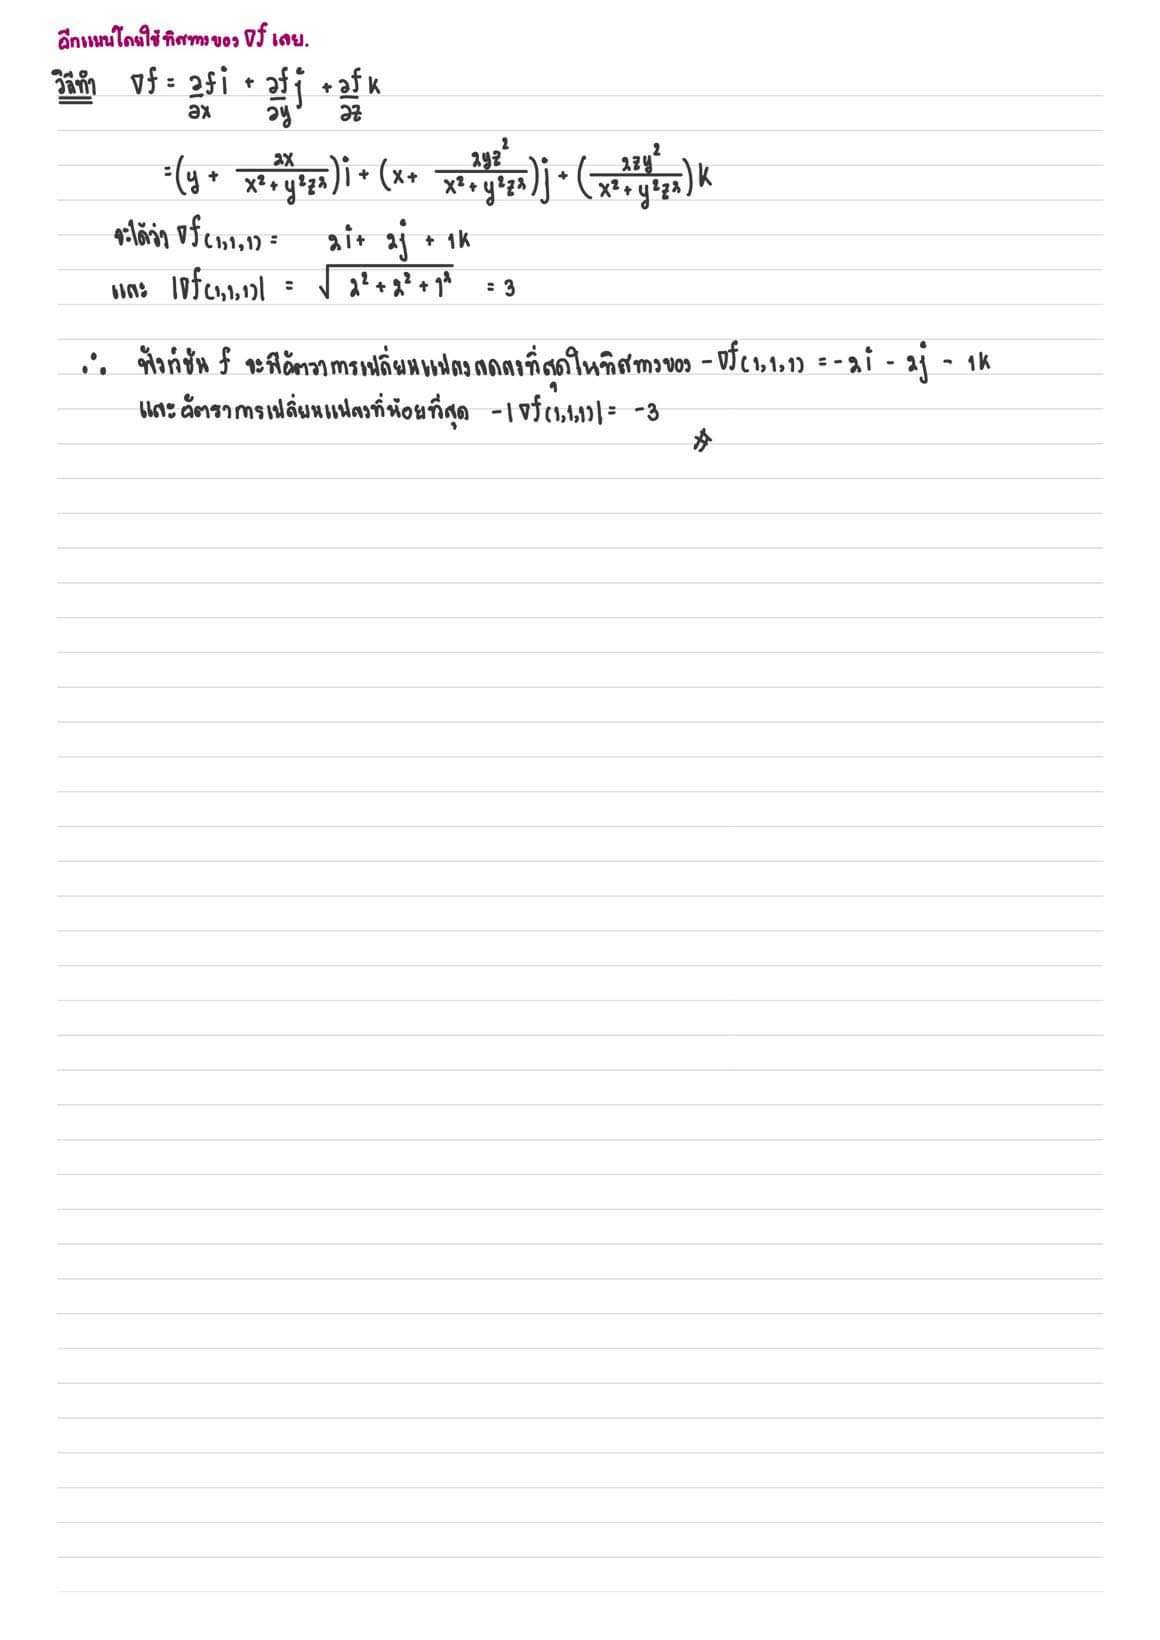 อีกแบบโดยใช้ทิศทางของ ∇f เลย.
วิธีทำ ∇f = ∂f/∂x i + ∂f/∂y j + ∂f/∂z k
= (y + 2x/(x² + y²z²)) i + (x + 2yz²/(x² + y²z²)) j + (2zy²/(x² + y²z²)) k
จะได้ว่า ∇f(1,1,1) = 2i + 2j + 1k
และ |∇f(1,1,1)| = √(2² + 2² + 1²) = 3
∴ ฟังก์ชัน f จะมีอัตราการเปลี่ยนแปลงลดลงที่สุดในทิศทางของ -∇f(1,1,1) = -2i - 2j - 1k
และอัตราการเปลี่ยนแปลงที่น้อยที่สุด -|∇f(1,1,1)| = -3
#